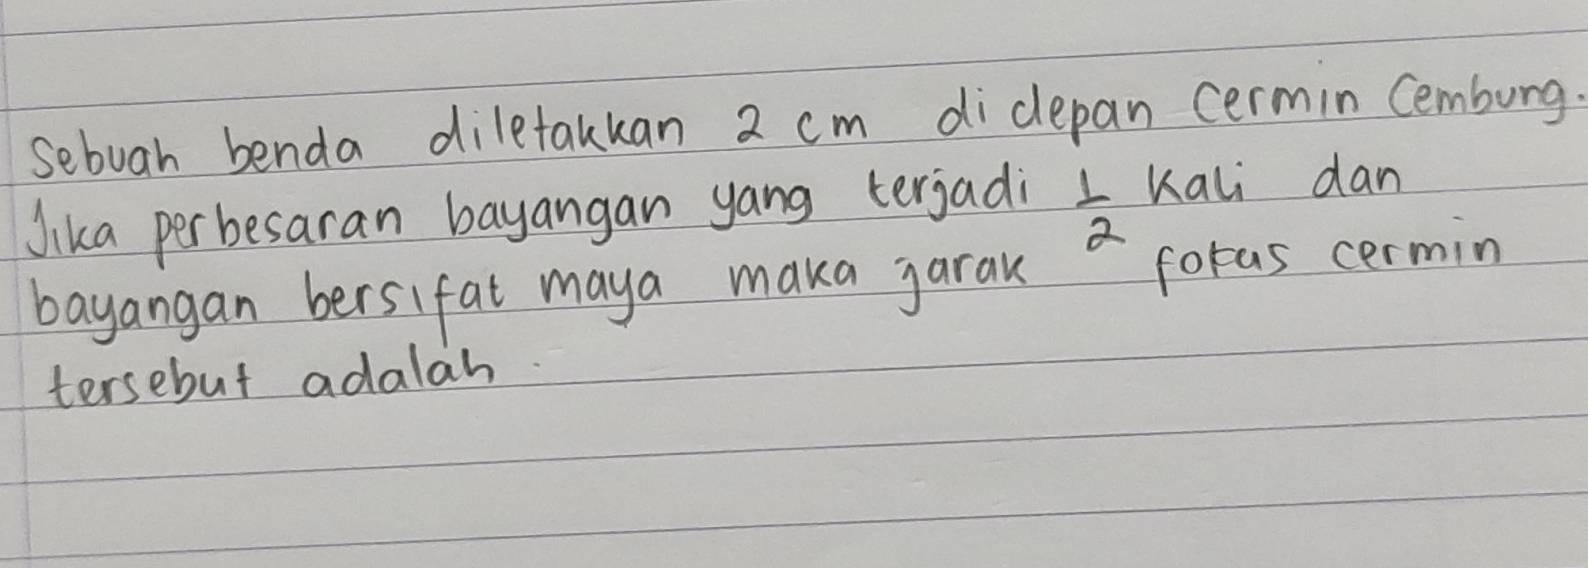 Sebuah benda diletakkan 2 cm di depan cermin cembung.
Jika perbesaran bayangan yang terjadi 1/2 kali dan
bayangan bersifat maya maka jarak fokus cermin
tersebut adalah.